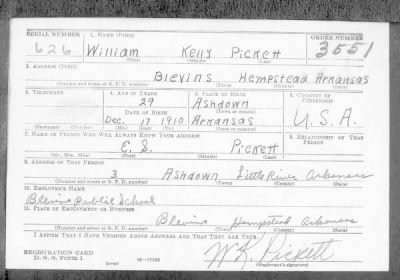 SERIAL NUMBER 1. NAME (Print) ORDER NUMBER
626 William Kelly Pickett 3551
(First) (Middle) (Last)
2. ADDRESS (Print)
Blevins Hempstead Arkansas
(Number and street or R. F. D. number) (Town) (County) (State)
3. TELEPHONE 4. AGE IN YEARS 5. PLACE OF BIRTH 6. COUNTRY OF CITIZENSHIP
29 Ashdown
DATE OF BIRTH (Town or county)
Dec. 1910 Arkansas U.S.A.
(Exchange) (Number) (Mo.) (Day) (Yr.) (State or country)
7. NAME OF PERSON WHO WILL ALWAYS KNOW YOUR ADDRESS 8. RELATIONSHIP OF THAT PERSON
E. S. Pickett
(Mr., Mrs., Miss) (First) (Middle) (Last)
9. ADDRESS OF THAT PERSON
3 Ashdown Little River Arkansas
(Number and street or R. F. D. number) (Town) (County) (State)
10. EMPLOYER'S NAME
Blevins Public School
11. PLACE OF EMPLOYMENT OR BUSINESS
Blevins Hempstead Arkansas
(Number and street or R. F. D. number) (Town) (County) (State)
I AFFIRM THAT I HAVE VERIFIED ABOVE ANSWERS AND THAT THEY ARE TRUE.
REGISTRATION CARD
D. S. S. Form 1 (over) 16—17105 W. K. Pickett
(Registrant's signature)